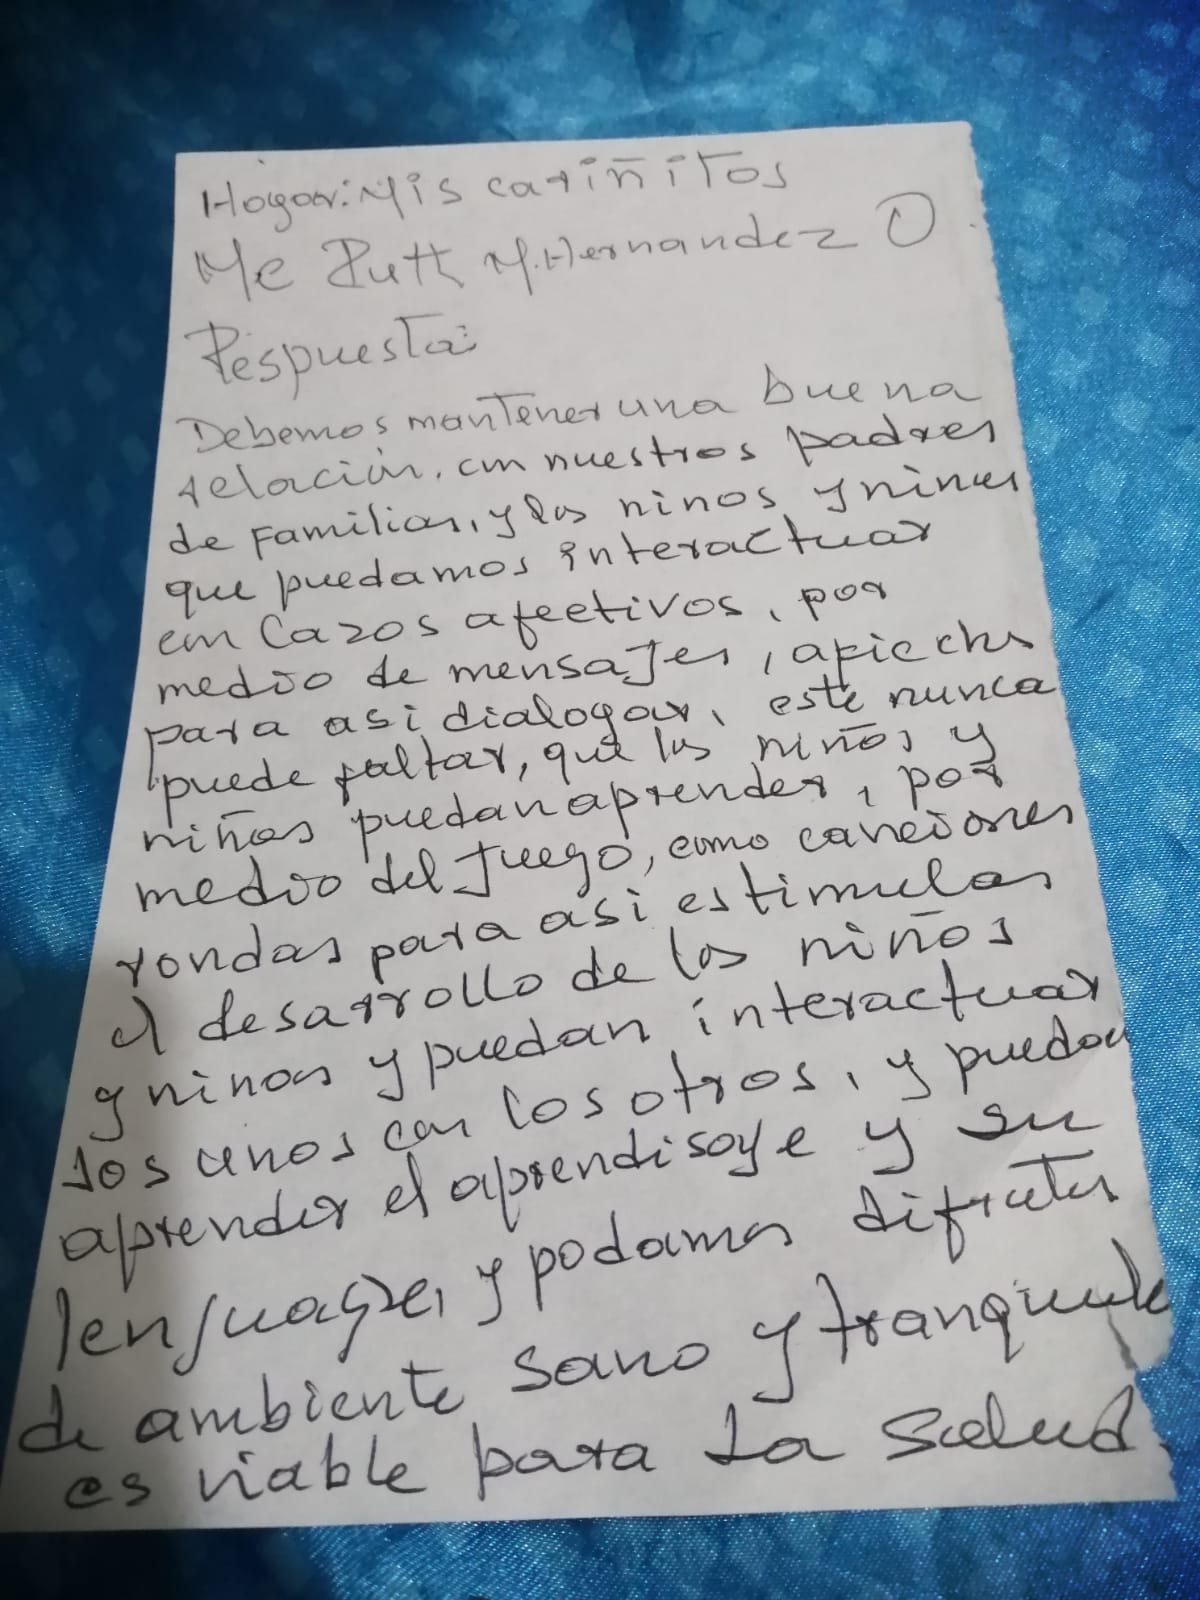 Hogar: Mis cariñitos
Mc Rutt M. Hernandez O
Respuesta:
Debemos mantener una buena
relación, con nuestros padres
de Familias, y los ninos y ninas
que puedamos interactuar
em Cazos afeetivos, por
medio de mensajes,
para asi dialogar, este nunca
puede faltar, que los niños y
niñas puedan aprender, por
medio del juego, como canciones
rondas para asi estimular
el desarrollo de los niños
y ninas y puedan interactuar
los unos con los otros, y puedan
aprender el aprendisaye y su
lenjuage, y podamos difrutar
de ambiente sano y tranquilo
es viable para La Salud.